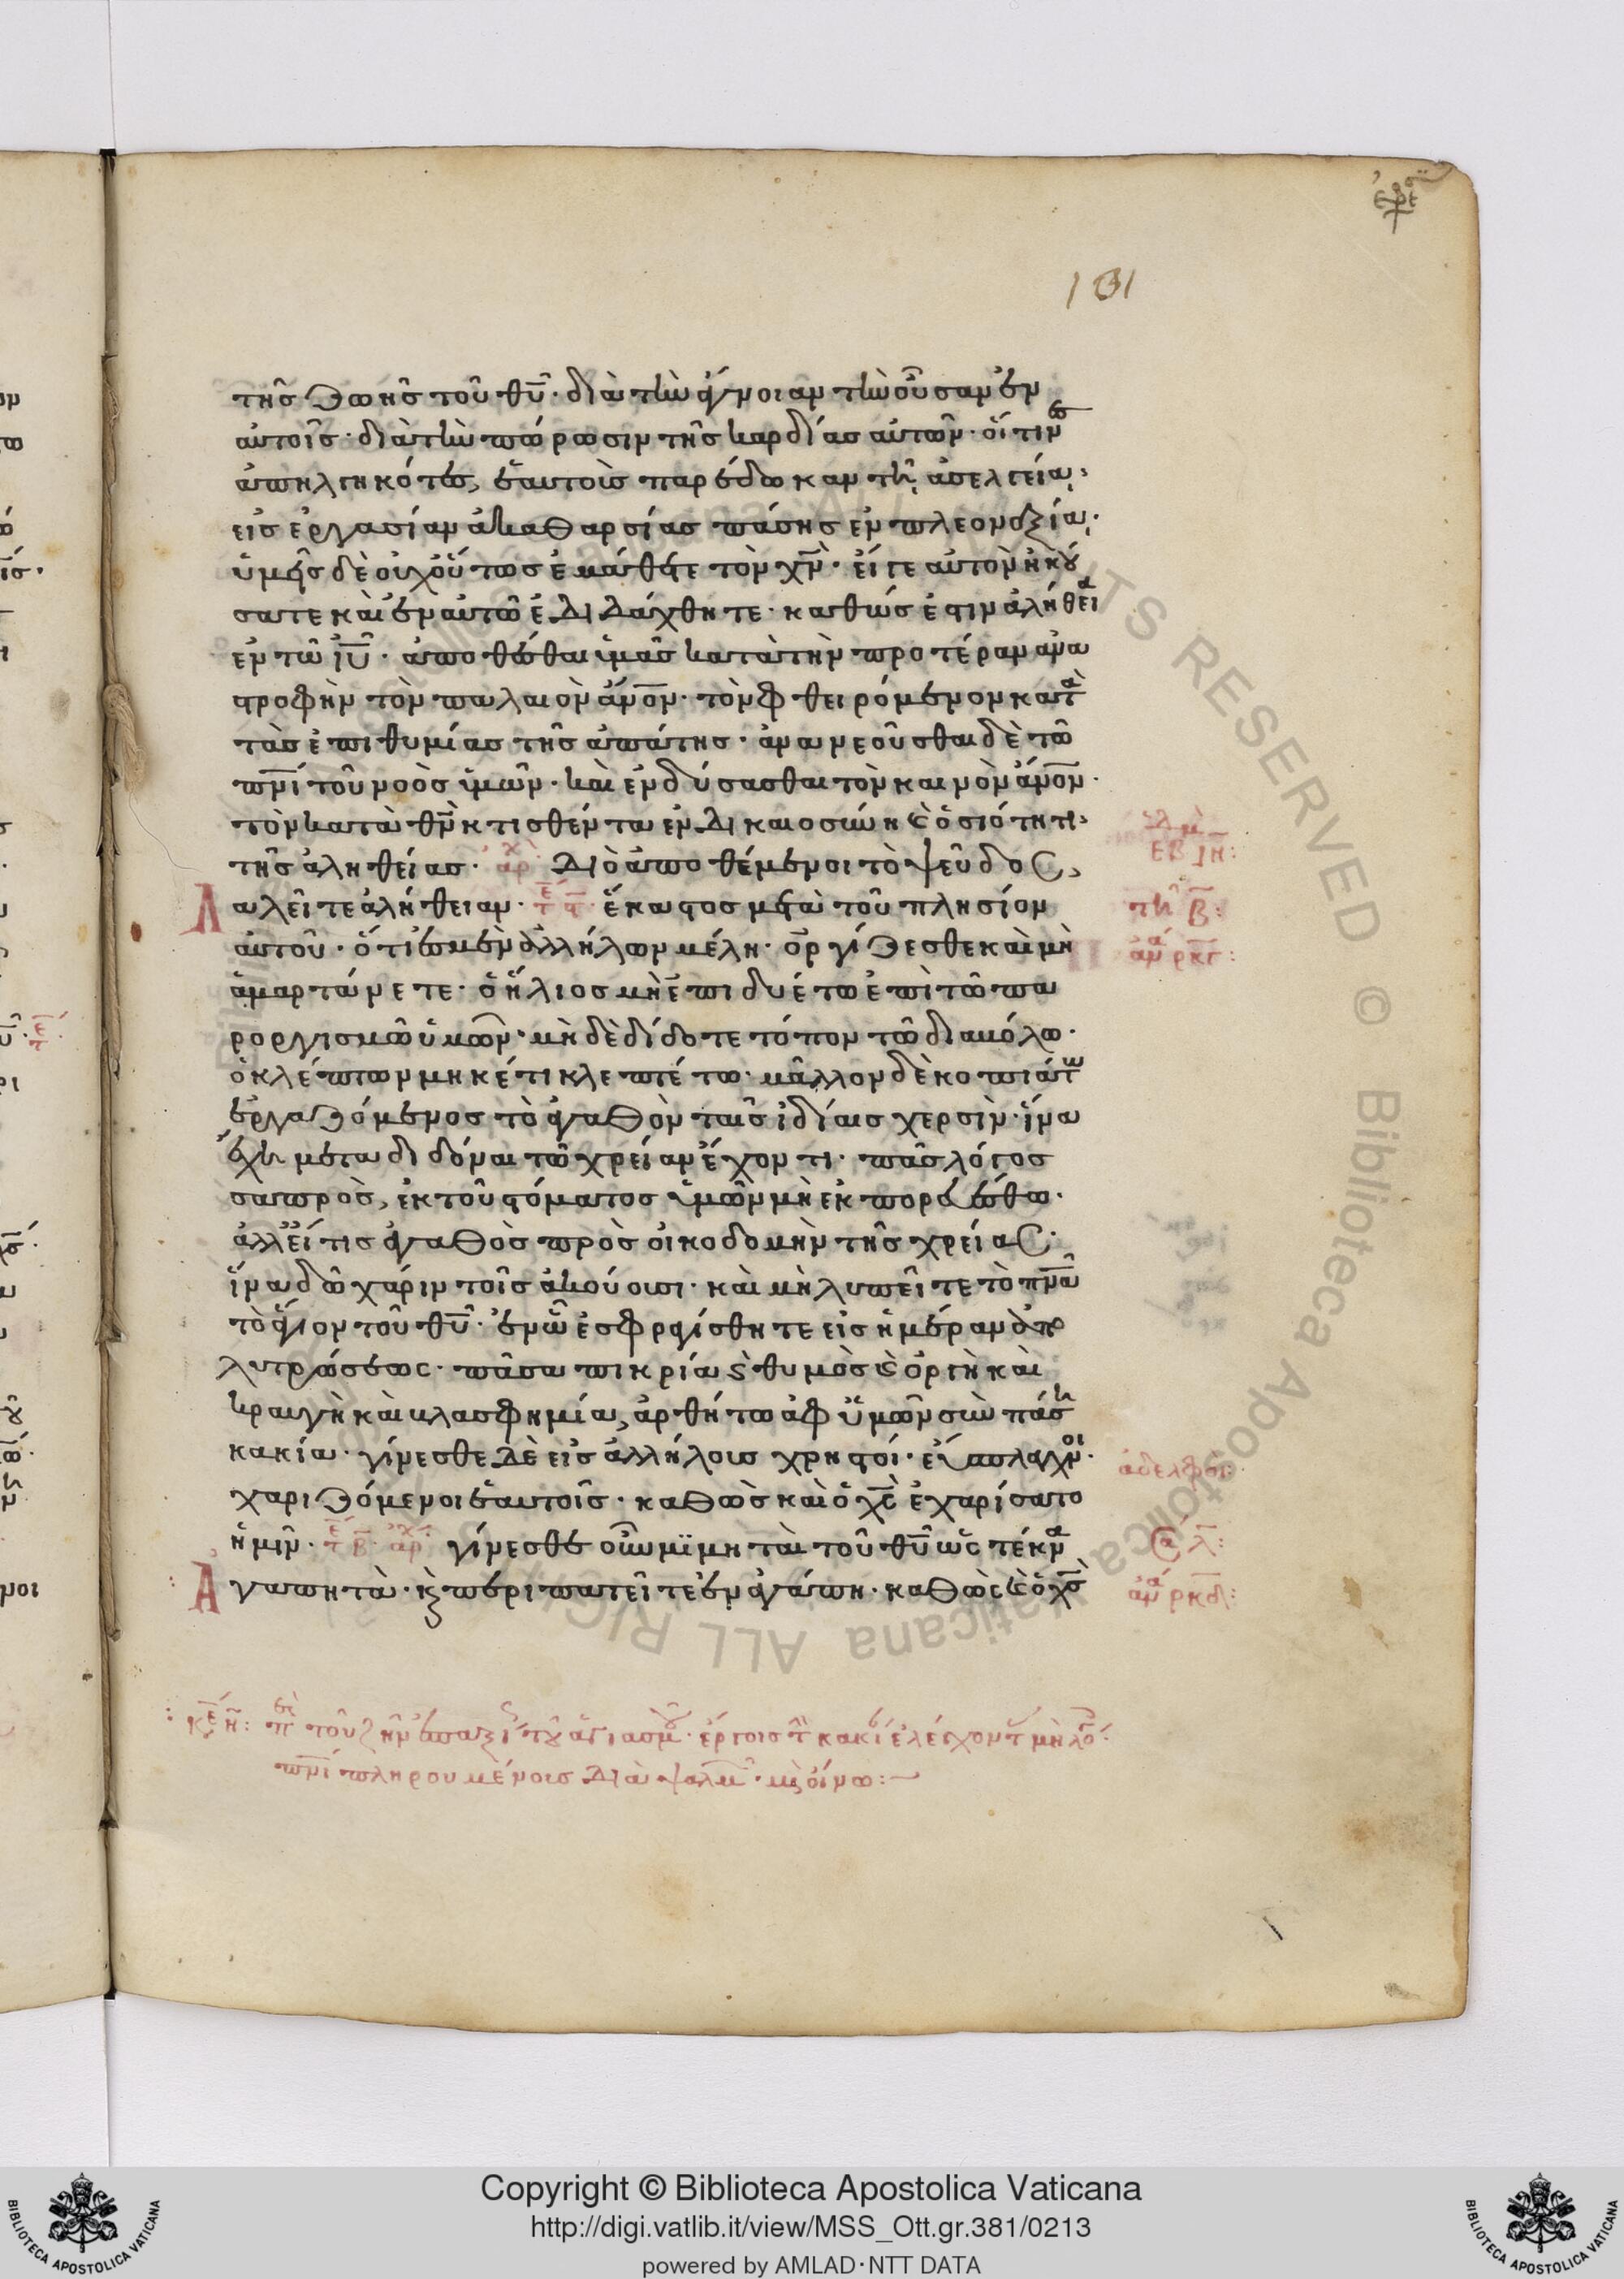 101
τῆς ζωῆς τοῦ θῡ· διὰ τὴν ἄγνοιαν τὴν οὖσαν ἐν
αὐτοῖς· διὰ τὴν πώρωσιν τῆς καρδίας αὐτῶν· οἵτινες
ἀπηλγηκότες, ἑαυτοὺς παρέδωκαν τῇ ἀσελγείᾳ,
εἰς ἐργασίαν ἀκαθαρσίας πάσης ἐν πλεονεξίᾳ·
ὑμεῖς δὲ οὐχ οὕτως ἐμάθετε τὸν χ̅ν̅· εἴγε αὐτὸν ἠκού
σατε καὶ ἐν αὐτῷ ἐδιδάχθητε· καθώς ἐστιν ἀλήθεια
ἐν τῶ ι̅υ̅· ἀποθέσθαι ὑμᾶς κατὰ τὴν προτέραν ἀνα
στροφὴν τὸν παλαιὸν ἄν̅ο̅ν̅· τὸν φθειρόμενον κατὰ
τὰς ἐπιθυμίας τῆς ἀπάτης· ἀνανεοῦσθαι δὲ τῶ
π̅ν̅ι̅ τοῦ νοὸς ὑμῶν· καὶ ἐνδύσασθαι τὸν καινὸν ἄν̅ο̅ν̅·
τὸν κατὰ θ̅ν̅ κτισθέντα ἐν δικαιοσύνη καὶ ὁσιότητι,
τῆς ἀληθείας· ἀρχ Διὸ ἀποθέμενοι τὸ ψεῦδος,
Λαλεῖτε ἀλήθειαν· ἕκαστος μετὰ τοῦ πλησίον
αὐτοῦ· ὅτι ἐσμὲν ἀλλήλων μέλη· ὀργίζεσθε καὶ μὴ
ἁμαρτάνετε· ὁ ἥλιος μὴ ἐπιδυέτω ἐπὶ τῶ πα
ροργισμῶ ὑμῶν· μὴ δὲ δίδοτε τόπον τῶ διαβόλω·
ὁ κλέπτων μηκέτι κλεπτέτω· μᾶλλον δὲ κοπιάτω
ἐργαζόμενος τὸ ἀγαθὸν ταῖς ἰδίαις χερσὶν· ἵνα
ἔχη μεταδιδόναι τῶ χρείαν ἔχοντι· πᾶς λόγος
σαπρὸς, ἐκ τοῦ στόματος ὑμῶν μὴ ἐκπορευέσθω·
ἀλλ' εἴ τις ἀγαθὸς πρὸς οἰκοδομὴν τῆς χρείας·
ἵνα δῶ χάριν τοῖς ἀκούουσι· καὶ μὴ λυπεῖτε τὸ π̅ν̅α̅
τὸ ἅγιον τοῦ θ̅υ̅· ἐν ὧ ἐσφραγίσθητε εἰς ἡμέραν ἀπο
λυτρώσεως· πᾶσα πικρία καὶ θυμὸς καὶ ὀργὴ καὶ
κραυγὴ καὶ βλασφημία, ἀρθήτω ἀφ' ὑμῶν σὺν πάση
κακία· γίνεσθε δὲ εἰς ἀλλήλους χρηστοί· εὔσπλαγχνοι·
χαριζόμενοι ἑαυτοῖς· καθὼς καὶ ὁ χ̅ς̅ ἐχαρίσατο
ἡμῖν· ἀρχ γίνεσθε οὖν μιμηταὶ τοῦ θ̅υ̅ ὡς τέκνα
Ἀγαπητὰ· καὶ περιπατεῖτε ἐν ἀγάπη· καθὼς καὶ ὁ χ̅ς̅
τῆ β̅:
ἀνα ρκγ:
ἀδελφοί:
ἀνα ρκδ:
π̅ν̅ι̅ πληρουμένοις διὰ ψαλμ· μὴ οἴνω:
Copyright © Biblioteca Apostolica Vaticana
http://digi.vatlib.it/view/MSS_Ott.gr.381/0213
powered by AMLAD·NTT DATA
BIBLIOTECA APOSTOLICA VATICANA
BIBLIOTECA APOSTOLICA VATICANA